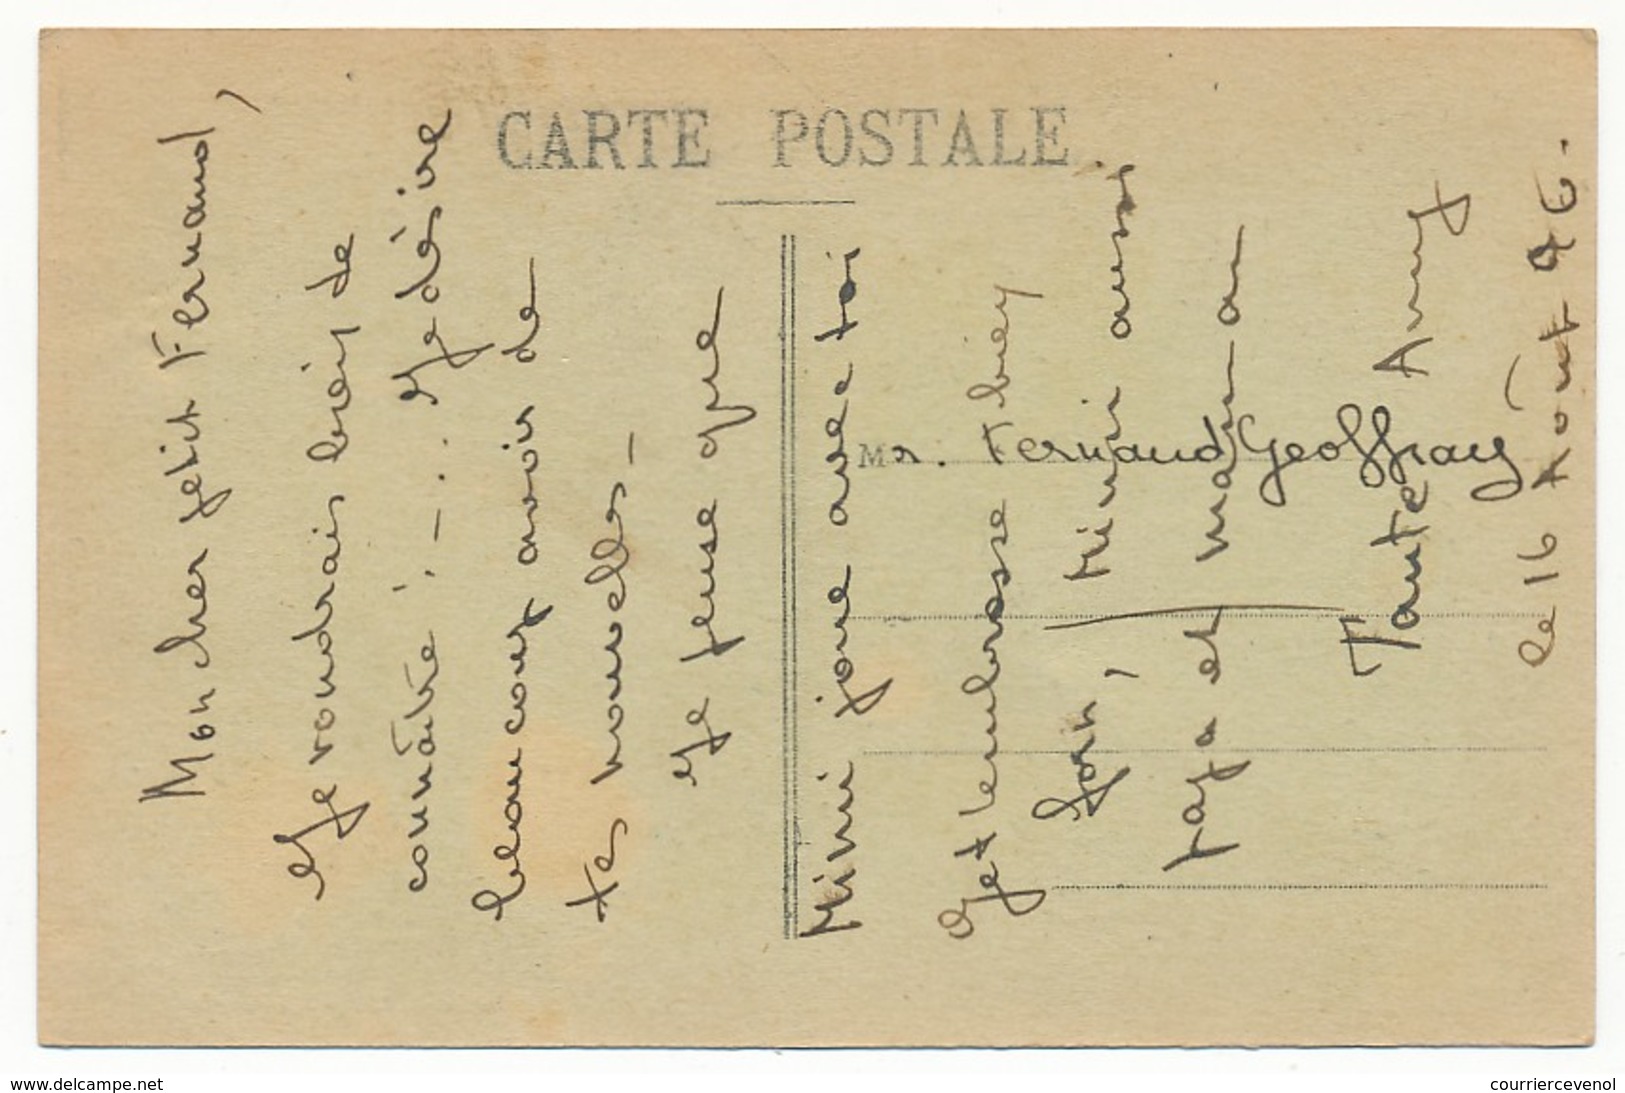 CARTE POSTALE
Mon cher petit Fernand,
Je voudrais bien de
connaître !-.. Je désire
beaucoup avoir de
tes nouvelles-
Je pense que
Mimi joue avec toi
Je t'embrasse bien
fort, Mimi aussi
papa et maman
Tante Any
le 16 Août 46.
Mr. Fernand Geoffray
www.delcampe.net
courriercevenol